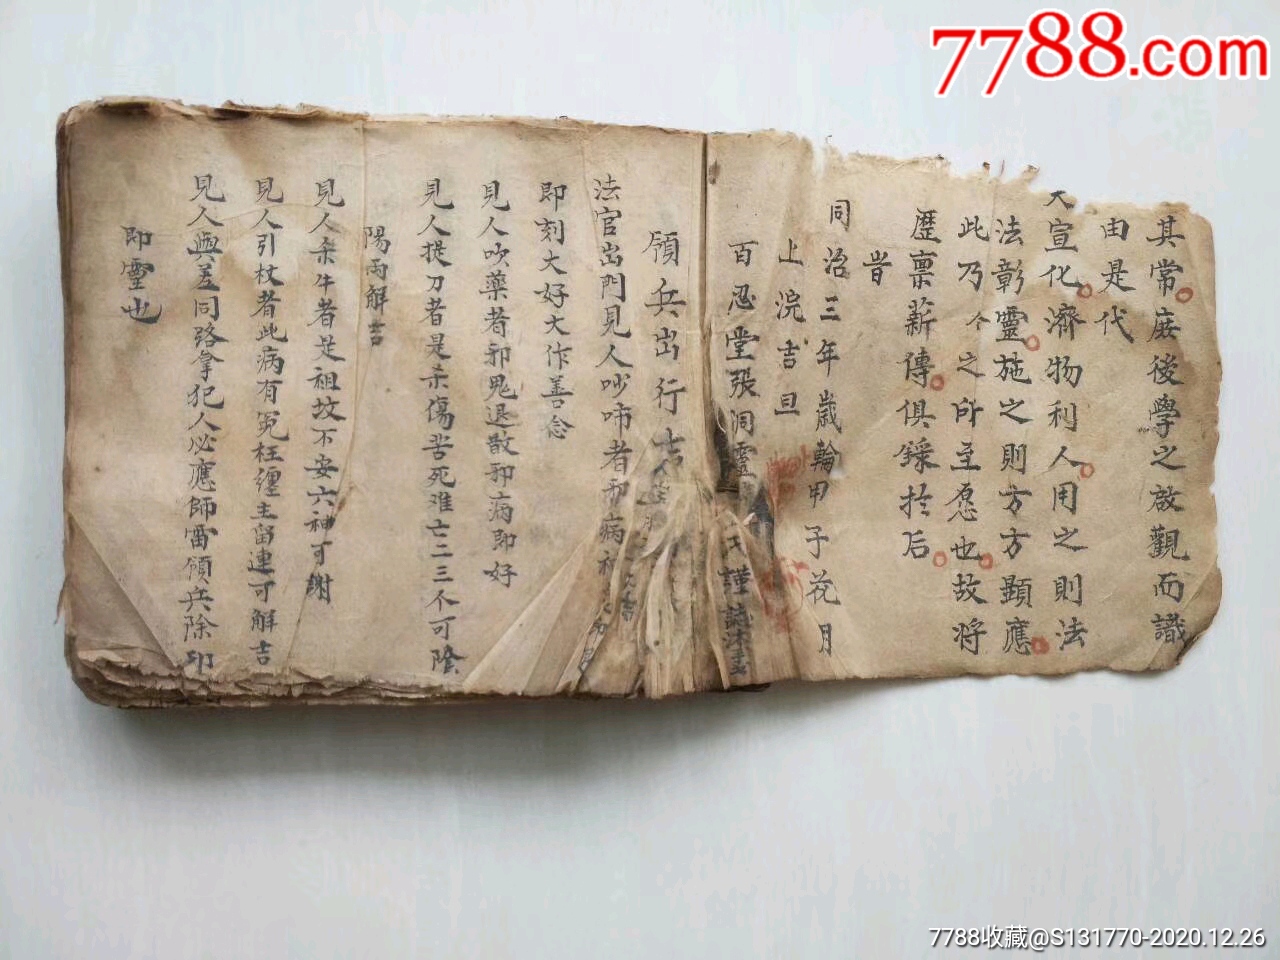 7788.com
其常庶後學之啟觀而識
由是代
天宣化濟物利人用之則法
法彰靈施之則方方顯應
此乃今之所至愿也故将
歷禀薪傳俱錄扵后
旹
同治三年歲輪甲子花月
上浣吉旦
百忍堂張洞靈 謹誌沐書
領兵出行吉
法官出門見人吵啼者邪病
即刻大好大作善念
見人吹藥者邪鬼退散邪病即好
見人提刀者是杀傷苦死难亡二三不可除
陽雨解吉
見人杀牛者是祖坟不安六神可謝
見人引杖者此病有冤枉纏主留連可解吉
見人與差同路拿犯人必應師雷領兵除邪
即靈也
7788收藏@S131770-2020.12.26